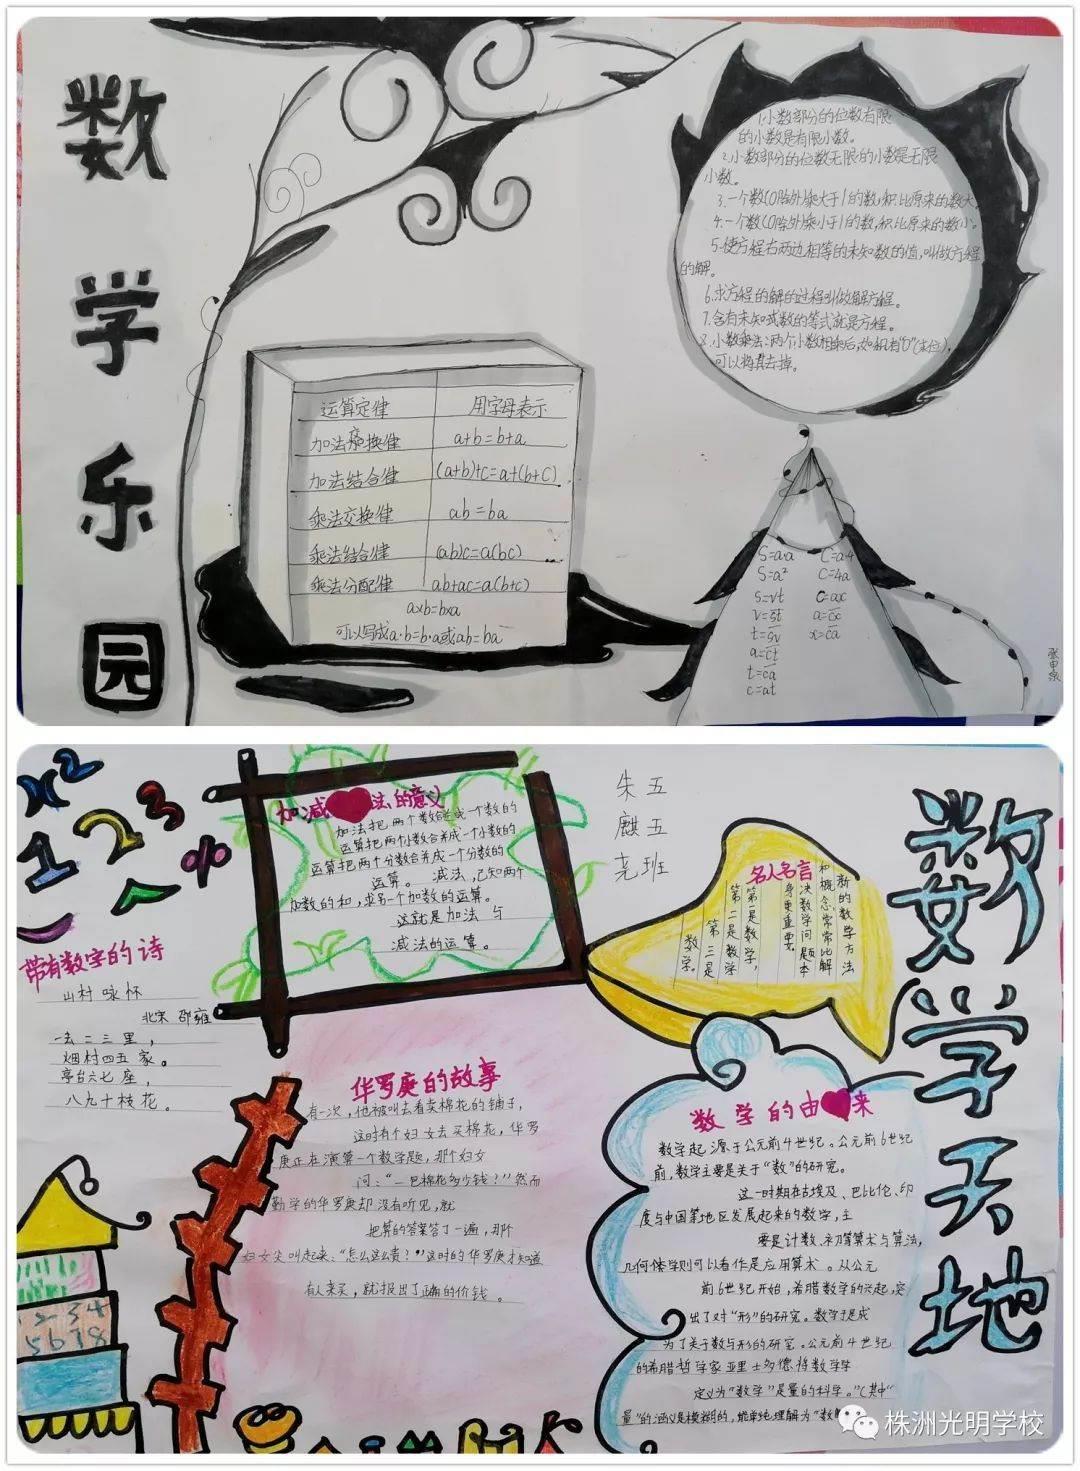 数学乐园
1.小数部分的位数有限
的小数是有限小数。
2.小数部分的位数无限的小数是无限
小数。
3.一个数(0除外乘大于1的数,积比原来的数大
4.一个数(0除外乘小于1的数,积比原来的数小。
5.使方程右两边相等的未知数的值,叫做方程
的解。
6.求方程的解的过程叫做解方程。
7.含有未知数的等式就是方程。
8.小数乘法:两个小数相乘后,如积有"0"(末位),
可以将其去掉。
运算定律 用字母表示
加法交换律 a+b=b+a
加法结合律 (a+b)+c=a+(b+c)
乘法交换律 ab=ba
乘法结合律 (ab)c=a(bc)
乘法分配律 ab+ac=a(b+c)
a×b=b×a
可以写成a·b=b·a或ab=ba
S=a·a C=a·4
S=a² C=4a
S=vt C=ax
v=st a=cx
t=sv x=ca
a=ct
t=ca
c=at
数学天地
朱麒尧
五五班
1 2 3
%
加减法的意义
加法把两个数合并成一个数的
运算把两个小数合并成一个小数的
运算把两个分数合并成一个分数的
运算。 减法,已知两个
加数的和,求另一个加数的运算。
这就是加法与
减法的运算。
名人名言
新的数学方法
和概念,常常比解
决数学问题本
身更重要。
第一是数学,
第二是数学
第三是
数学。
带有数字的诗
山村咏怀
北宋 邵雍
一去二三里,
烟村四五家。
亭台六七座,
八九十枝花。
华罗庚的故事
有一次,他被叫去看卖棉花的铺子,
这时有个妇女去买棉花,华罗
庚正在演算一个数学题,那个妇女
问:"一包棉花多少钱?"然而
勤学的华罗庚却没有听见,就
把算的答案答了一遍,那个
妇女尖叫起来:"怎么这么贵?"这时的华罗庚才知道
有人来买,就报出了正确的价钱。
数学的由来
数学起源于公元前4世纪。公元前6世纪
前,数学主要是关于"数"的研究。
这一时期在古埃及、巴比伦、印
度与中国等地区发展起来的数学,主
要是计数、初等算术与算法,
几何学则可以看作是应用算术。从公元
前6世纪开始,希腊数学的兴起,突
出了对"形"的研究。数学于是成
为了关于数与形的研究。公元前4世纪
的希腊哲学家亚里士多德将数学
定义为"数学"是量的科学。"(其中"
量"的涵义是模糊的,能单纯理解为"数
2 3 4
5 6 7 8
株洲光明学校